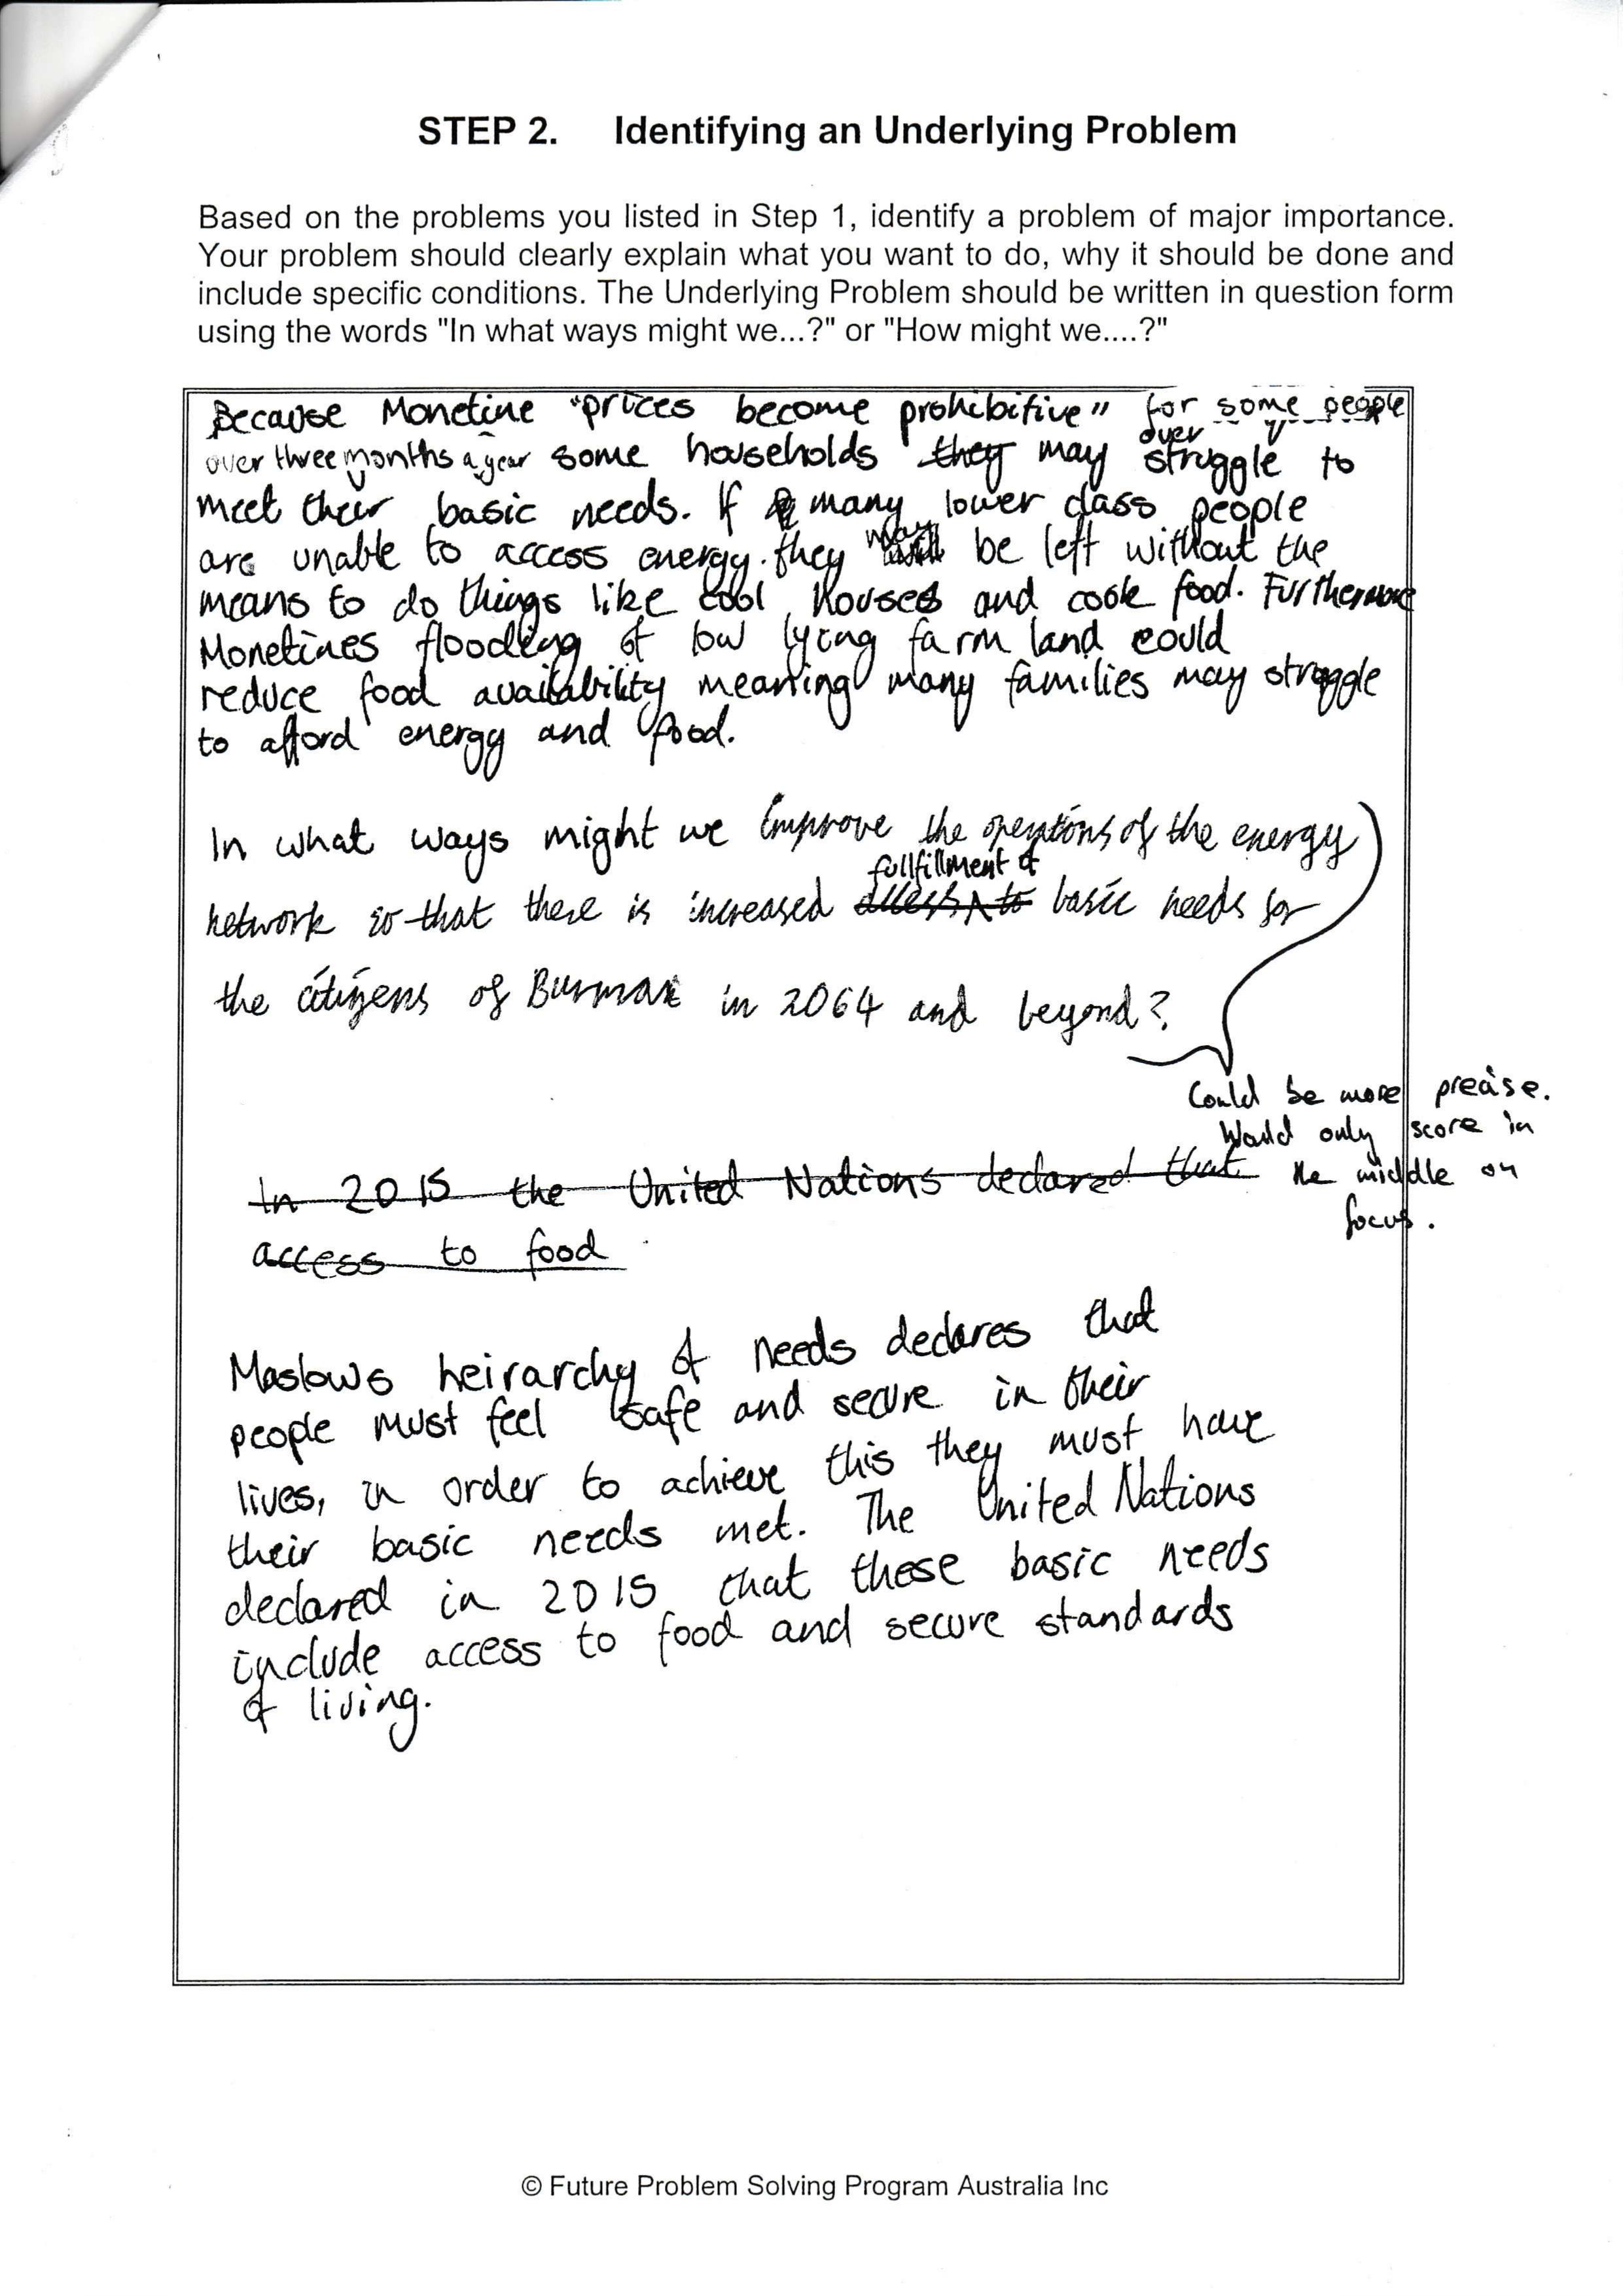 STEP 2. Identifying an Underlying Problem
Based on the problems you listed in Step 1, identify a problem of major importance.
Your problem should clearly explain what you want to do, why it should be done and
include specific conditions. The Underlying Problem should be written in question form
using the words "In what ways might we...?" or "How might we....?"
Because Monetine "prices become prohibitive" for some people
over three months a year some households they may over struggle to
meet their basic needs. If many lower class people
are unable to access energy. they may be left without the
means to do things like cool houses and cook food. Furthermore
Monetines flooding of low lying farm land could
reduce food availability meaning many families may struggle
to afford energy and food.
In what ways might we improve the operations of the energy
fullfillment of
network so that there is increased access to basic needs for
the citizens of Burmak in 2064 and beyond?
Could be more precise.
Would only score in
the middle on
focus.
In 2015 the United Nations declared that
access to food
Maslows heirarchy of needs declares that
people must feel safe and secure in their
lives, in order to achieve this they must have
their basic needs met. The United Nations
declared in 2015 that these basic needs
include access to food and secure standards
of living.
© Future Problem Solving Program Australia Inc